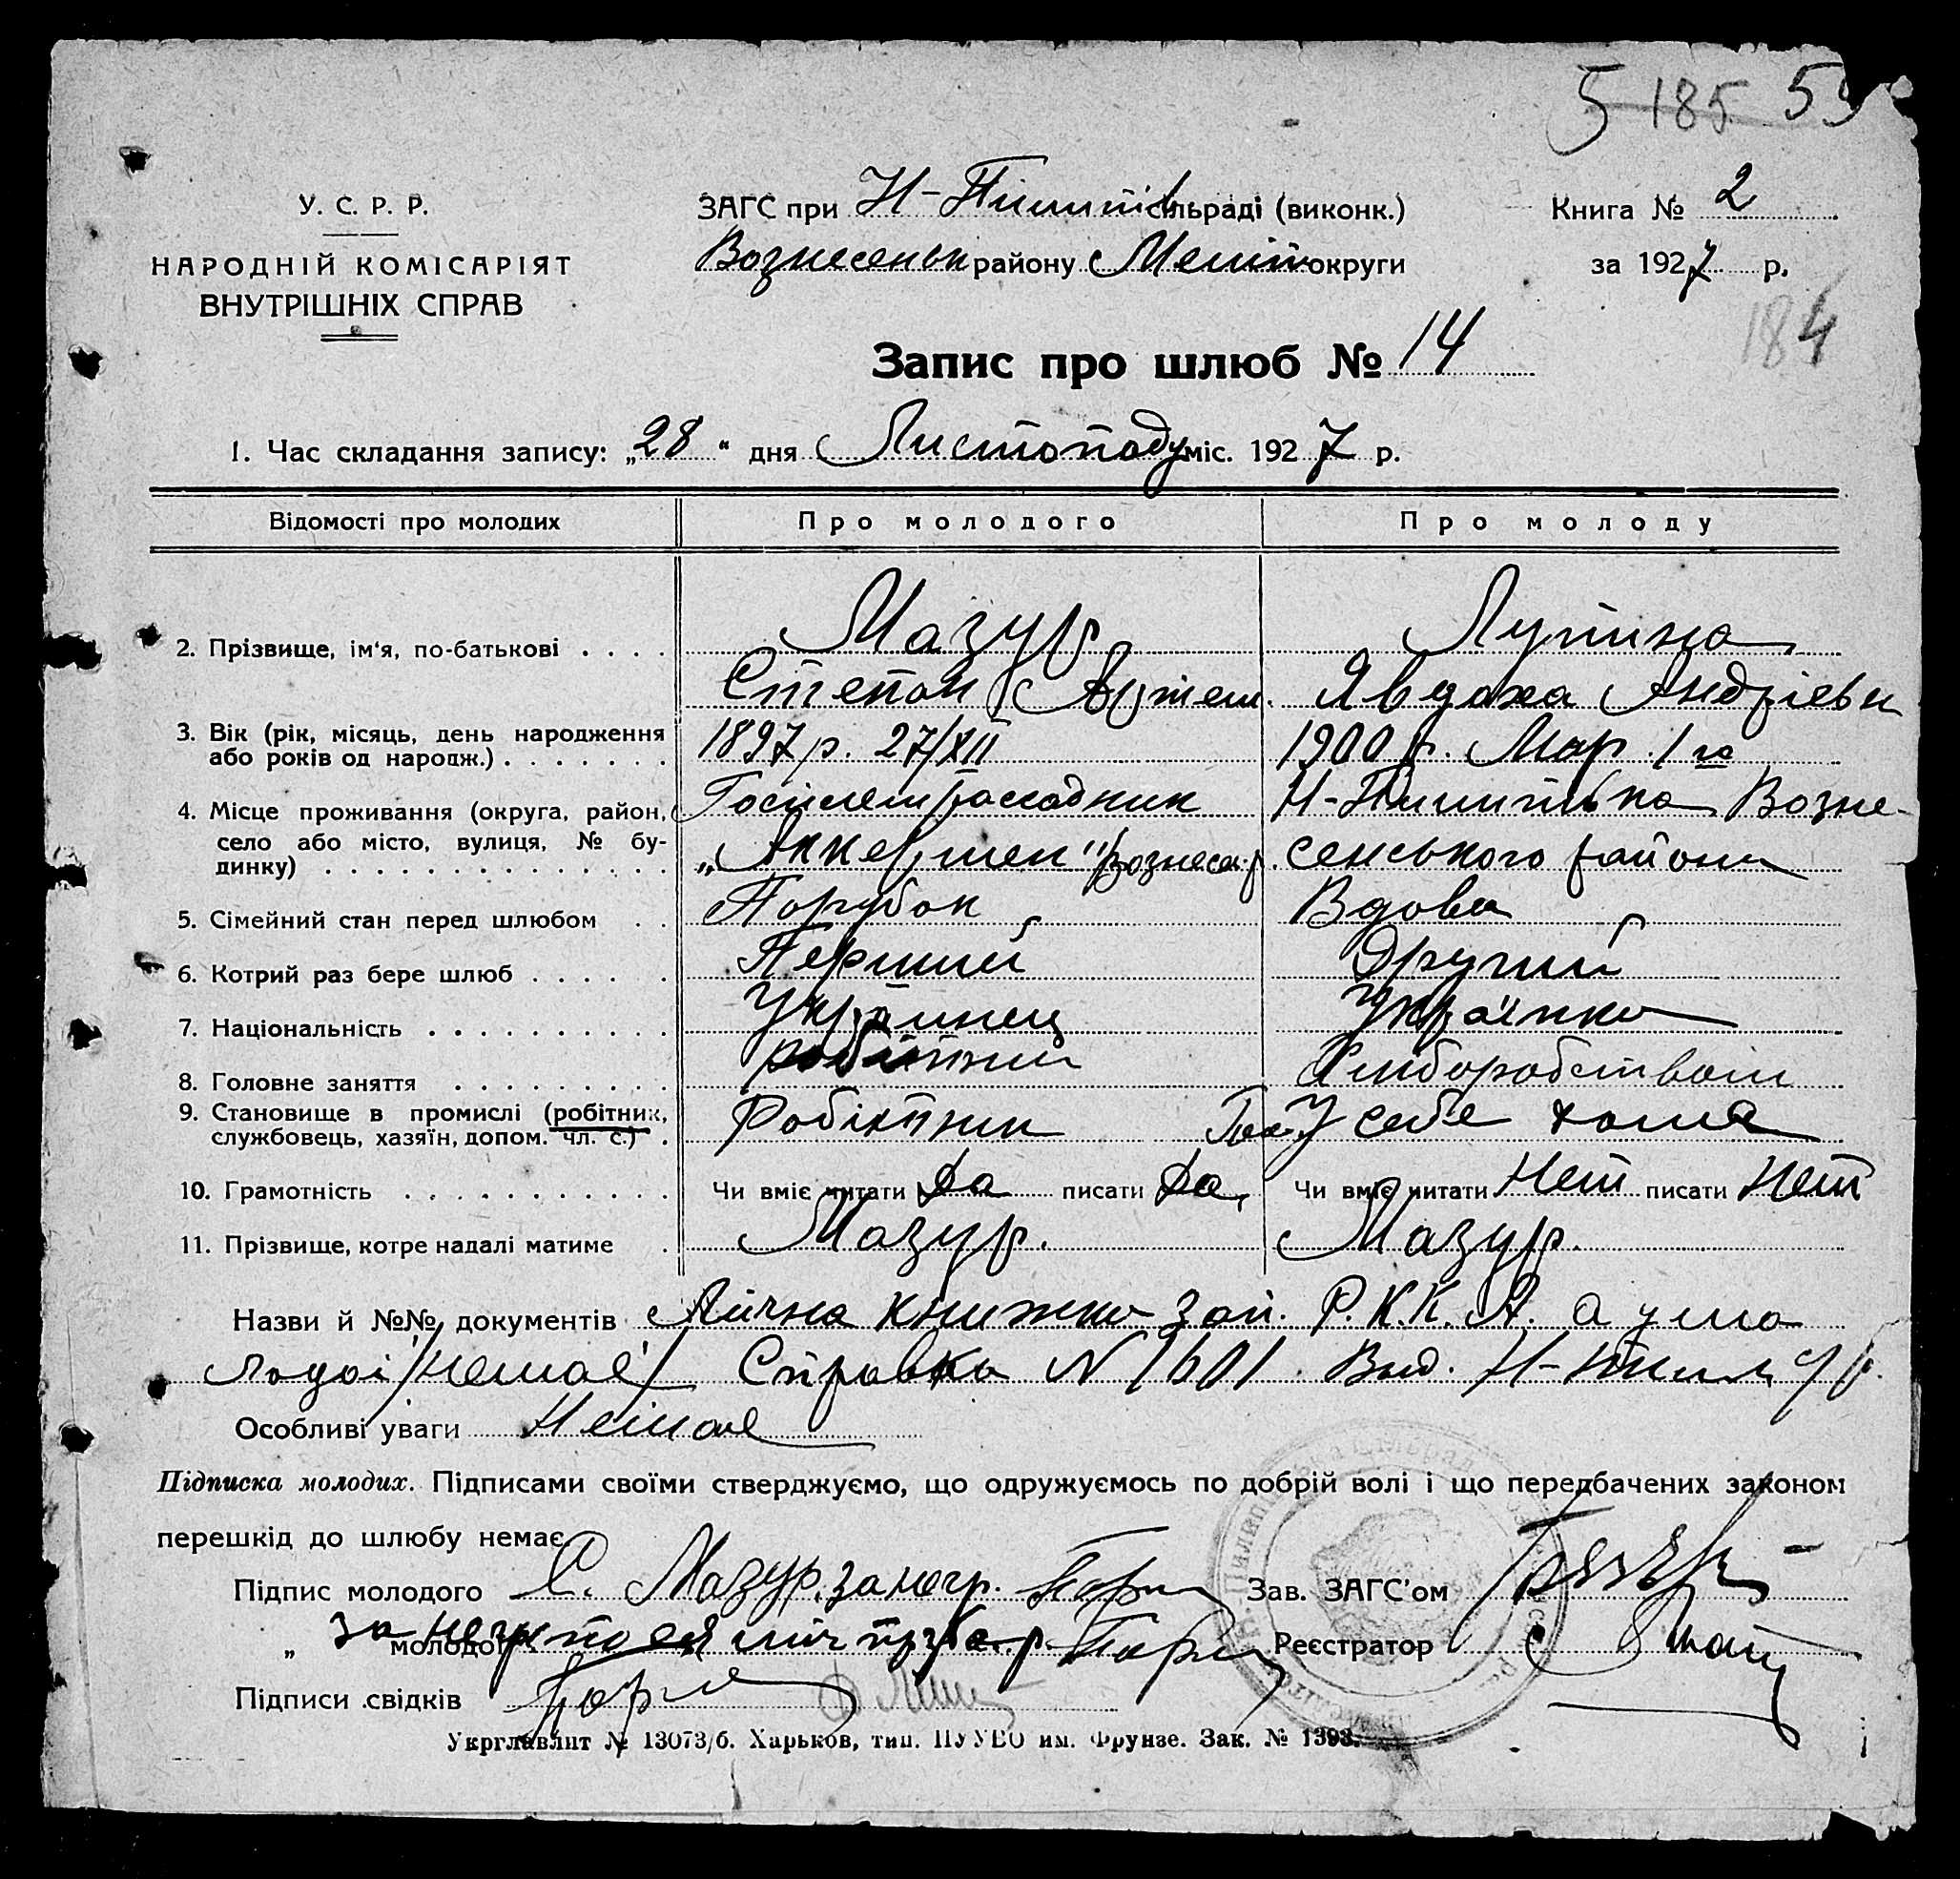 5 185 55
У. С. Р. Р.
НАРОДНІЙ КОМІСАРІЯТ
ВНУТРІШНІХ СПРАВ
ЗАГС при Н-Пилипів сільраді (виконк.)
Вознесенськ району Меліт округи
Книга № 2
за 1927 р.
184
Запис про шлюб № 14
1. Час складання запису: „28“ дня Листопаду міс. 1927 р.
Відомості про молодих
Про молодого
Про молоду
2. Прізвище, ім'я, по-батькові . . . .
Мазур
Степан Артем.
Лупина
Явдоха Андрієвн
3. Вік (рік, місяць, день народження
або років од народж.) . . . . . . .
1897 р. 27/XII
1900 р. Мар. 1 го
4. Місце проживання (округа, район,
село або місто, вулиця, № бу-
динку) . . . . . . . . . . . . . .
„Аккермен" Вознесен. р.
Н-Пилипівка Возне-
сенського району
5. Сімейний стан перед шлюбом . .
Парубок
Вдова
6. Котрий раз бере шлюб . . . . . .
Перший
Другий
7. Національність . . . . . . . . . .
Українец
Українка
8. Головне заняття . . . . . . . . .
робітник
Хліборобством
9. Становище в промислі (робітник,
службовець, хазяїн, допом. чл. с.) .
Робітник
У себе дома
10. Грамотність . . . . . . . . . . .
Чи вміє читати Да писати Да
Чи вміє читати Нет писати Нет
11. Прізвище, котре надалі матиме .
Мазур.
Мазур.
Назви й №№ документів Лічна книжка зап. Р.К.К.А. а у мо
лодої /немає/ Справка N 1601. Вид. Н-Пилип
Особливі уваги Немає
Підписка молодих. Підписами своїми стверджуємо, що одружуємось по добрій волі і що передбачених законом
перешкід до шлюбу немає.
Підпис молодого С. Мазур. за негр.
Зав. ЗАГС'ом
„ молодої за негр
Реєстратор
Підписи свідків
Укрглавліт № 13073/б. Харьков, тип. ПУУВО им. Фрунзе. Зак. № 1393.